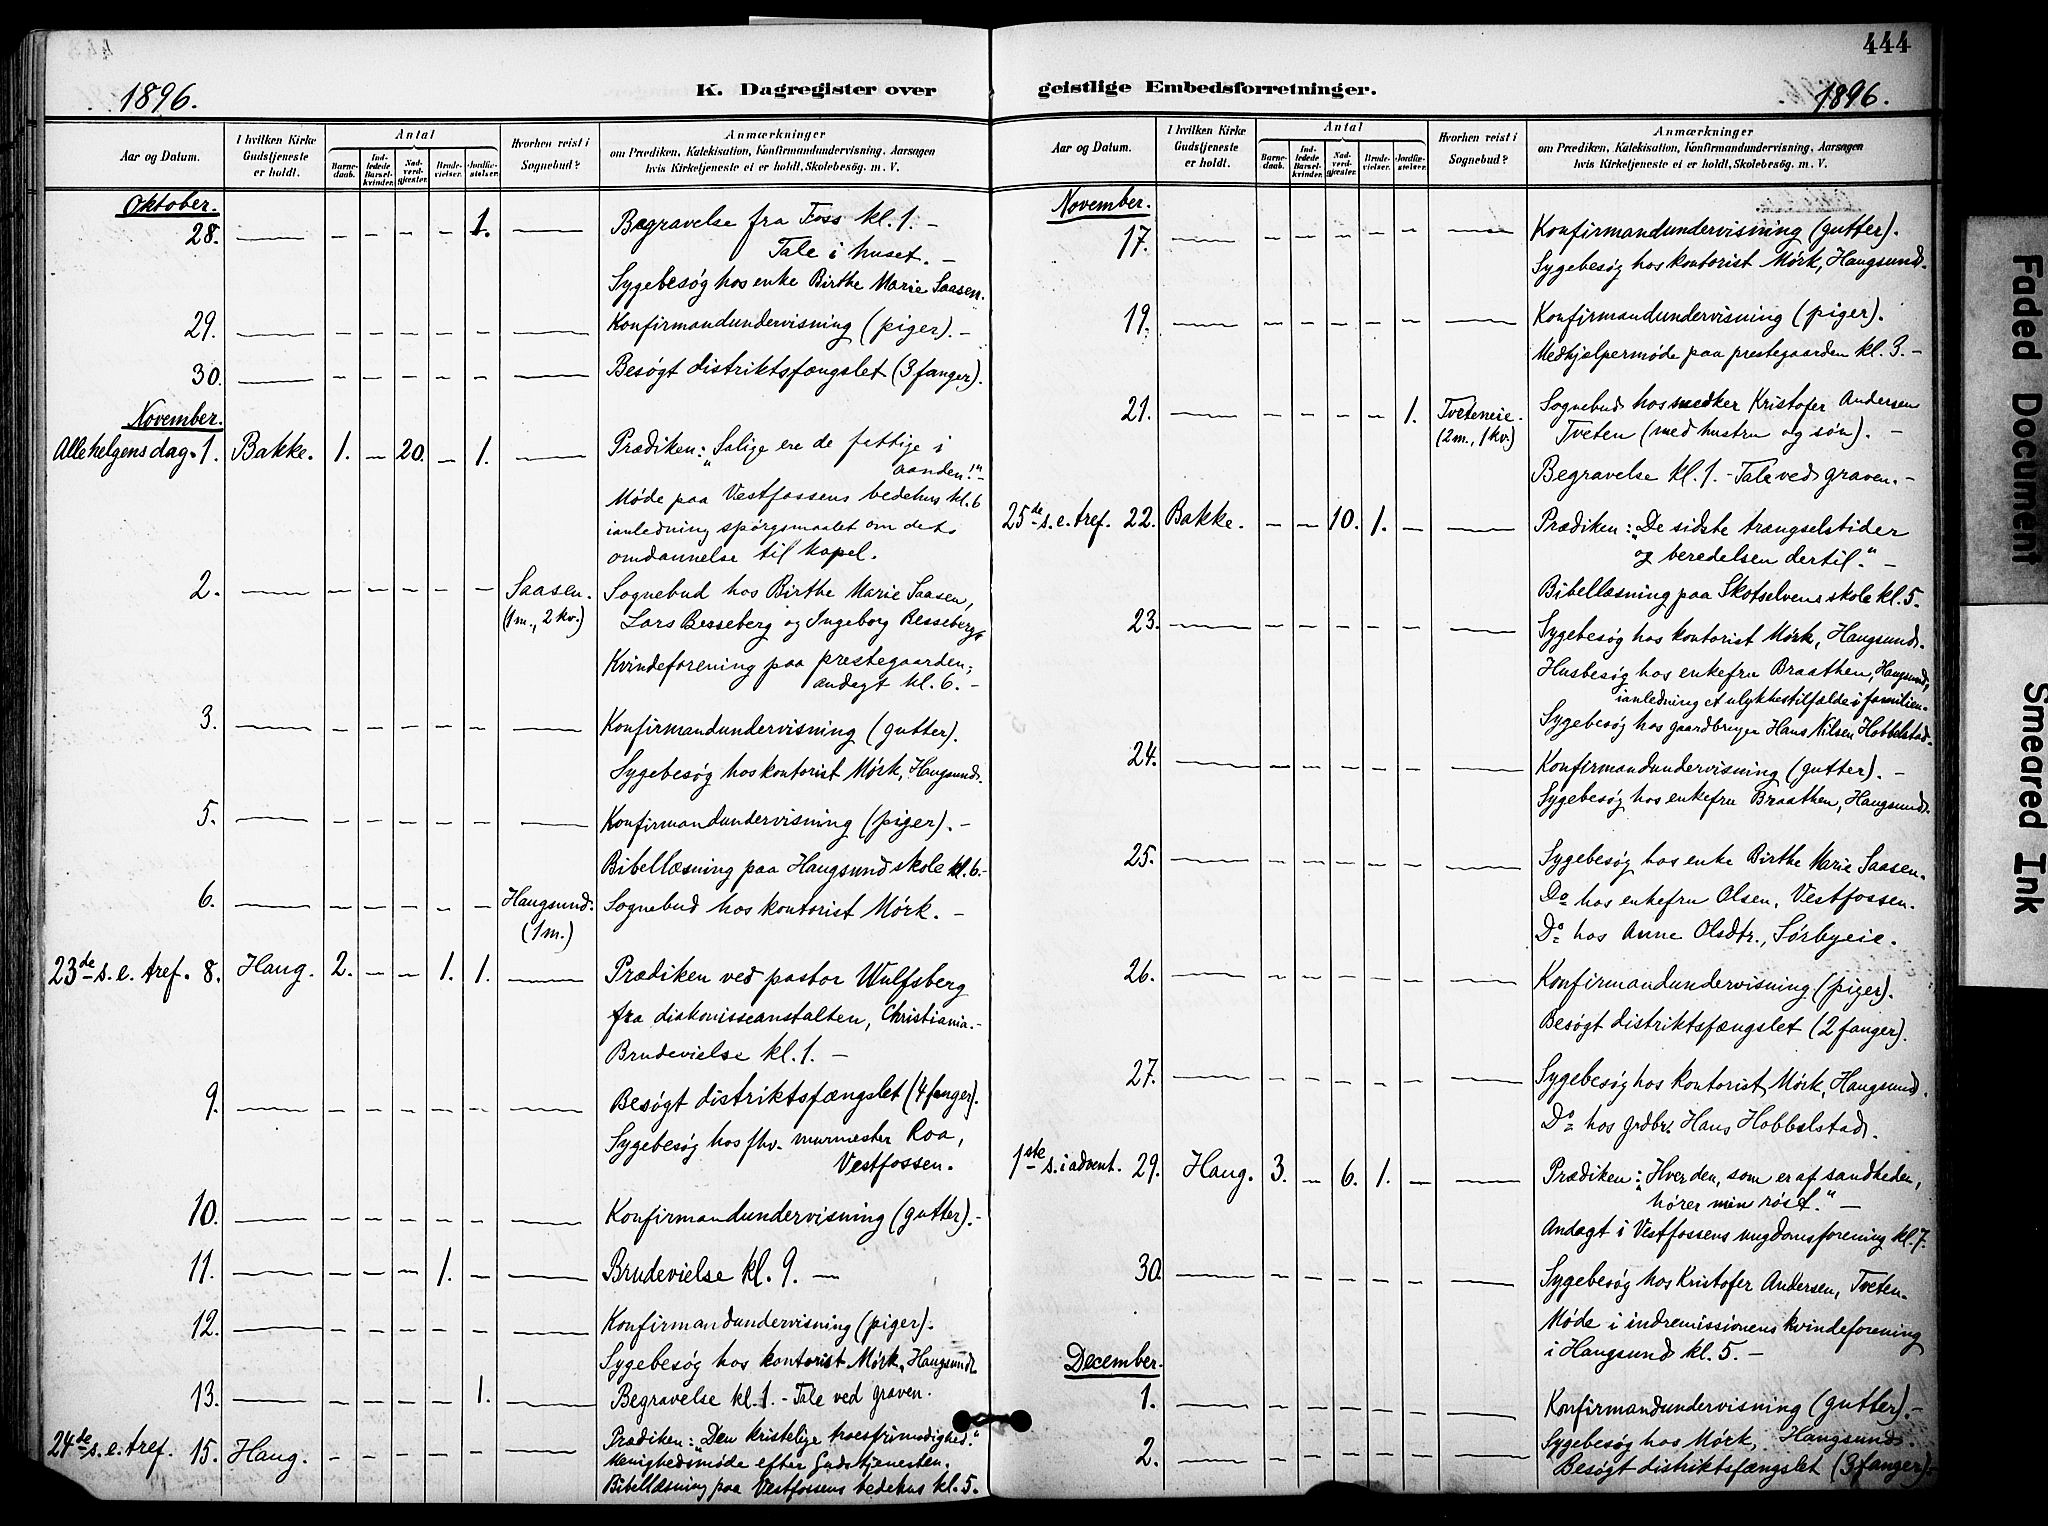 444
1896.
K. Dagregister over
Aar og Datum.
I hvilken Kirke Gudstjeneste er holdt.
Antal
Barnedaab.
Indledede Barselkvinder.
Nadverdgjester.
Brudevielser.
Jordfæstelser.
Hvorhen reist i Sognebud?
Anmærkninger
om Prædiken, Katekisation, Konfirmandundervisning, Aarsagen
hvis Kirketjeneste ei er holdt, Skolebesøg. m. V.
Oktober.
28. — — — — — 1. — Begravelse fra Foss kl. 1. —
Tale i huset. —
Sygebesøg hos enke Birthe Marie Saasen.
29. — — — — — — — Konfirmandundervisning (piger). —
30. — — — — — — — Besøgt distriktsfængslet (3 fanger).
November.
Allehelgensdag. 1. Bakke. 1. — 20. — 1. Prædiken: „Salige ere de fattige i
aanden!“ —
Møde paa Vestfossens bedehus kl. 6
ianledning spørgsmaalet om dets
omdannelse til kapel.
2. — — — — — — Saasen. Sognebud hos Birthe Marie Saasen,
(1 m., 2 kv.) Lars Besseberg og Ingeborg Besseberg.
Kvindeforening paa prestegaarden;
andagt kl. 6. —
3. — — — — — — — Konfirmandundervisning (gutter).
Sygebesøg hos kontorist Mørk, Haugsund.
5. — — — — — — — Konfirmandundervisning (piger). —
Bibellæsning paa Haugsund skole kl. 6. —
6. — — — — — — Haugsund. Sognebud hos kontorist Mørk. —
(1 m.)
23de s. e. tref. 8. Haug. 2. — — 1. 1. — Prædiken ved pastor Wulfsberg
fra diakonisseanstalten, Christiania. —
Brudevielse kl. 1. —
9. — — — — — — — Besøgt distriktsfængslet (4 fanger).
Sygebesøg hos fhv. murmester Roa,
Vestfossen.
10. — — — — — — — Konfirmandundervisning (gutter). —
11. — — — — 1. — — Brudevielse kl. 9. —
12. — — — — — — — Konfirmandundervisning (piger).
Sygebesøg hos kontorist Mørk, Haugsund.
13. — — — — — 1. Begravelse kl. 1. — Tale ved graven.
24de s. e. tref. 15. Haug. — — — — — — Prædiken: „Den kristelige troesfrimodighed.“
Menighedsmøde efter Gudstjenesten.
Bibellæsning paa Vestfossens bedehus kl. 5.
geistlige Embedsforretninger.
1896.
Aar og Datum.
I hvilken Kirke Gudstjeneste er holdt.
Antal
Barnedaab.
Indledede Barselkvinder.
Nadverdgjester.
Brudevielser.
Jordfæstelser.
Hvorhen reist i Sognebud?
Anmærkninger
om Prædiken, Katekisation, Konfirmandundervisning, Aarsagen
hvis Kirketjeneste ei er holdt, Skolebesøg. m. V.
November.
17. — — — — — — — Konfirmandundervisning (gutter).
Sygebesøg hos kontorist Mørk, Haugsund.
19. — — — — — — — Konfirmandundervisning (piger).
Medhjælpermøde paa prestegaarden kl. 3. —
21. — — — — — 1. Tveteneie. Sognebud hos snedker Kristofer Andersen
(2 m., 1 kv.) Tveten (med hustru og søn). —
Begravelse kl. 1. — Tale ved graven. —
25de s. e. tref. 22. Bakke. — — 10. 1. — — Prædiken: „De sidste trængselstider
og beredelsen dertil.“ —
Bibellæsning paa Skotselvens skole kl. 5.
23. — — — — — — — Sygebesøg hos kontorist Mørk, Haugsund.
Husbesøg hos enkefru Braathen, Haugsund,
ianledning et ulykkestilfælde i familien.
Sygebesøg hos gaardbruger Hans Nilsen Hobbelstad.
24. — — — — — — — Konfirmandundervisning (gutter). —
Sygebesøg hos enkefru Braathen, Haugsund.
25. — — — — — — — Sygebesøg hos enke Birthe Marie Saasen.
Do hos enkefru Olsen, Vestfossen.
Do hos Anne Olsdtr., Sørbyeie.
26. — — — — — — — Konfirmandundervisning (piger).
Besøgt distriktsfængslet (2 fanger).
27. — — — — — — — Sygebesøg hos kontorist Mørk, Haugsund.
Do hos grdbr. Hans Hobbelstad.
1ste s. i advent. 29. Haug. 3. — 6. 1. — — Prædiken: „Hver den, som er af sandheden,
hører min røst.“ —
Andagt i Vestfossens ungdomsforening kl. 7.
30. — — — — — — — Sygebesøg hos Kristofer Andersen, Tveten.
Møde i indremissionens kvindeforening
i Haugsund kl. 5. —
December.
1. — — — — — — — Konfirmandundervisning (gutter). —
2. — — — — — — — Sygebesøg hos Mørk, Haugsund.
Besøgt distriktsfængslet (3 fanger). —
Faded Document
Smeared Ink